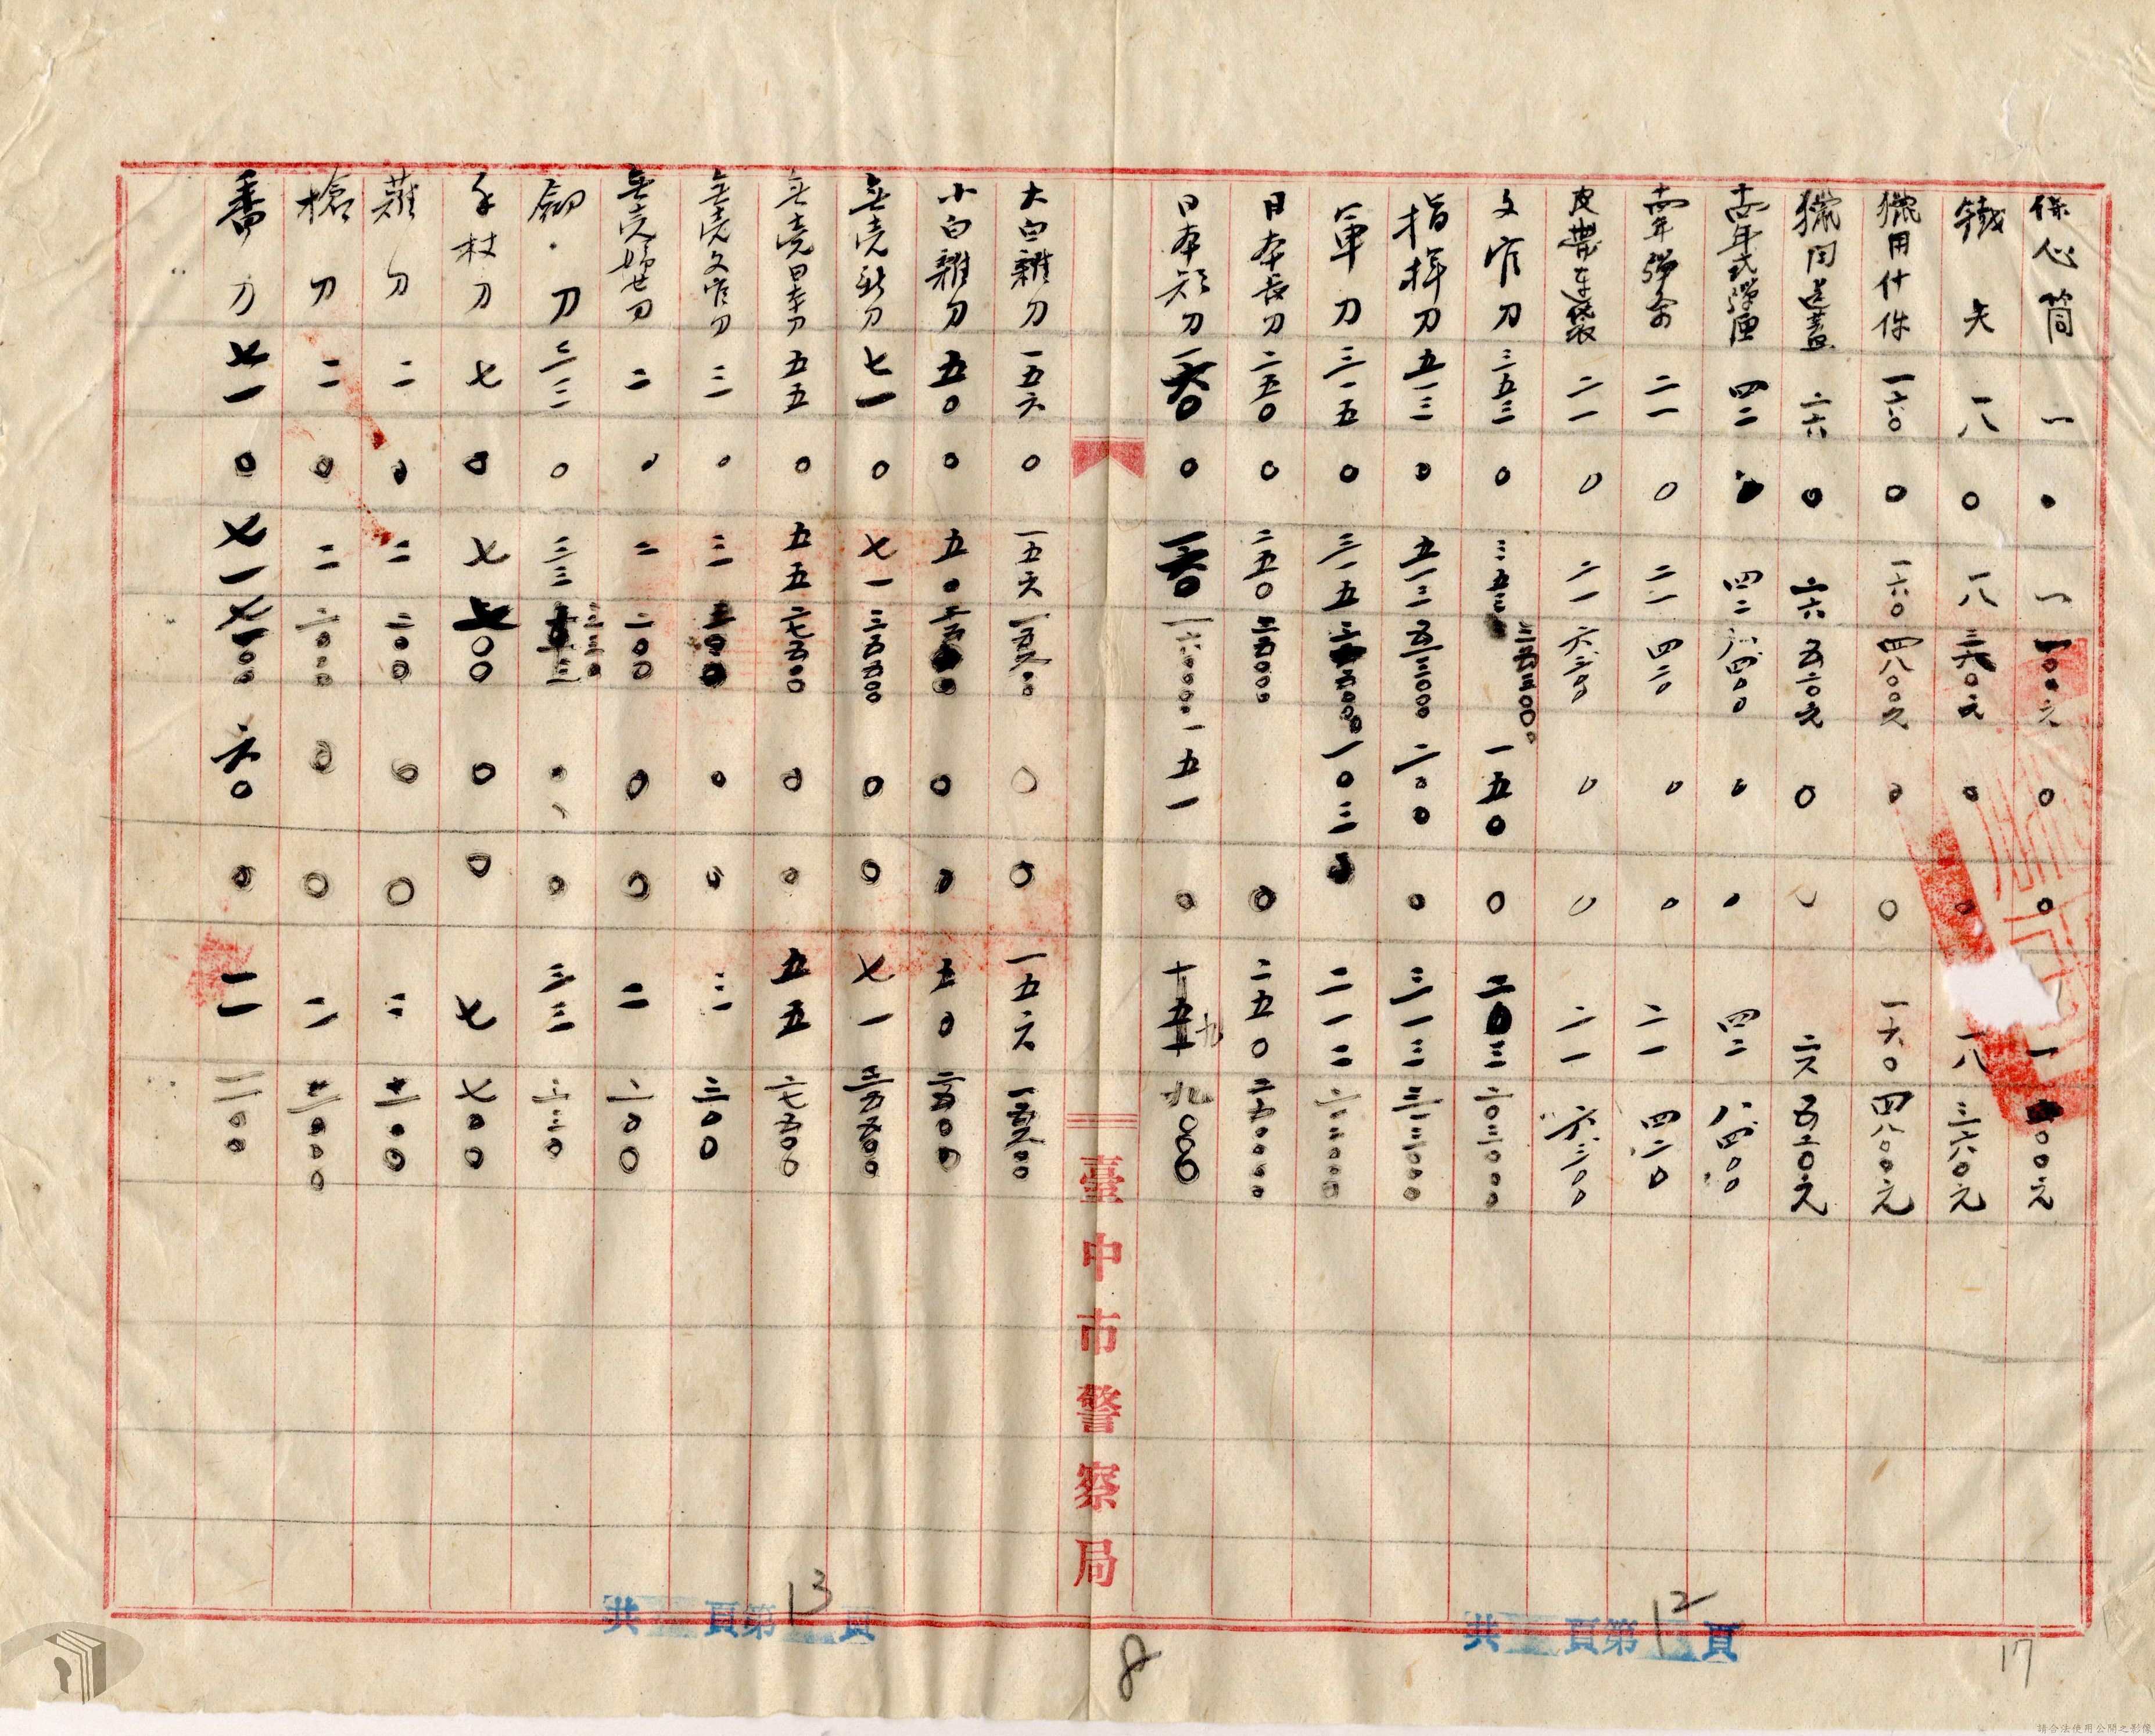 保心筒 一 〇 一 一〇〇元 〇 〇 一 一〇〇元
鐵夫 一八 〇 一八 三六〇元 〇 〇 一八 三六〇元
獵用什件 一六〇 〇 一六〇 四八〇〇元 〇 〇 一六〇 四八〇〇元
獵用 二六 〇 二六 五二〇元 〇 二六 五二〇元
十四年式彈匣 四二 〇 四二 八四〇〇 〇 〇 四二 八四〇〇
十四年彈 二一 〇 二一 四二〇 〇 〇 二一 四二〇
皮帶連袋 二一 〇 二一 六三〇〇 〇 〇 二一 六三〇〇
文官刀 三五三 〇 三五三 三五三〇〇〇 一五〇 〇 二〇三 二〇三〇〇〇
指揮刀 五一三 〇 五一三 五一三〇〇〇 二〇〇 〇 三一三 三一三〇〇〇
軍刀 三一五 〇 三一五 三一五〇〇〇 一〇三 〇 二一二 二一二〇〇〇
日本長刀 二五〇 〇 二五〇 二五〇〇〇〇 〇 二五〇 二五〇〇〇〇
日本短刀 一六〇 〇 一六〇 一六〇〇〇〇 一五一 〇 九 九〇〇〇
大白雜刀 一五六 〇 一五六 〇 〇 一五六
小白雜刀 五〇 〇 五〇 二五〇〇〇 〇 〇 五〇 二五〇〇〇
無壳 刀 七一 〇 七一 三五五〇〇 〇 〇 七一 三五五〇〇
無壳日本刀 五五 〇 五五 二七五〇〇 〇 〇 五五 二七五〇〇
無壳文官刀 三 〇 三 三〇〇 〇 〇 三 三〇〇
無壳 刀 二 〇 二 二〇〇 〇 〇 二 二〇〇
劍刀 三三 〇 三三 三三〇 〇 〇 三三 三三〇
手杖刀 七 〇 七 七〇〇 〇 〇 七 七〇〇
薙刀 二 〇 二 二〇〇 〇 〇 二 二〇〇
槍刀 二 〇 二 二〇〇〇 〇 〇 二 二〇〇〇
番刀 七一 〇 七一 七一〇〇 六〇 〇 一一 一一〇〇
臺中市警察局
共 頁第12頁
共 頁第13頁
8
17
請合法使用公開之影像